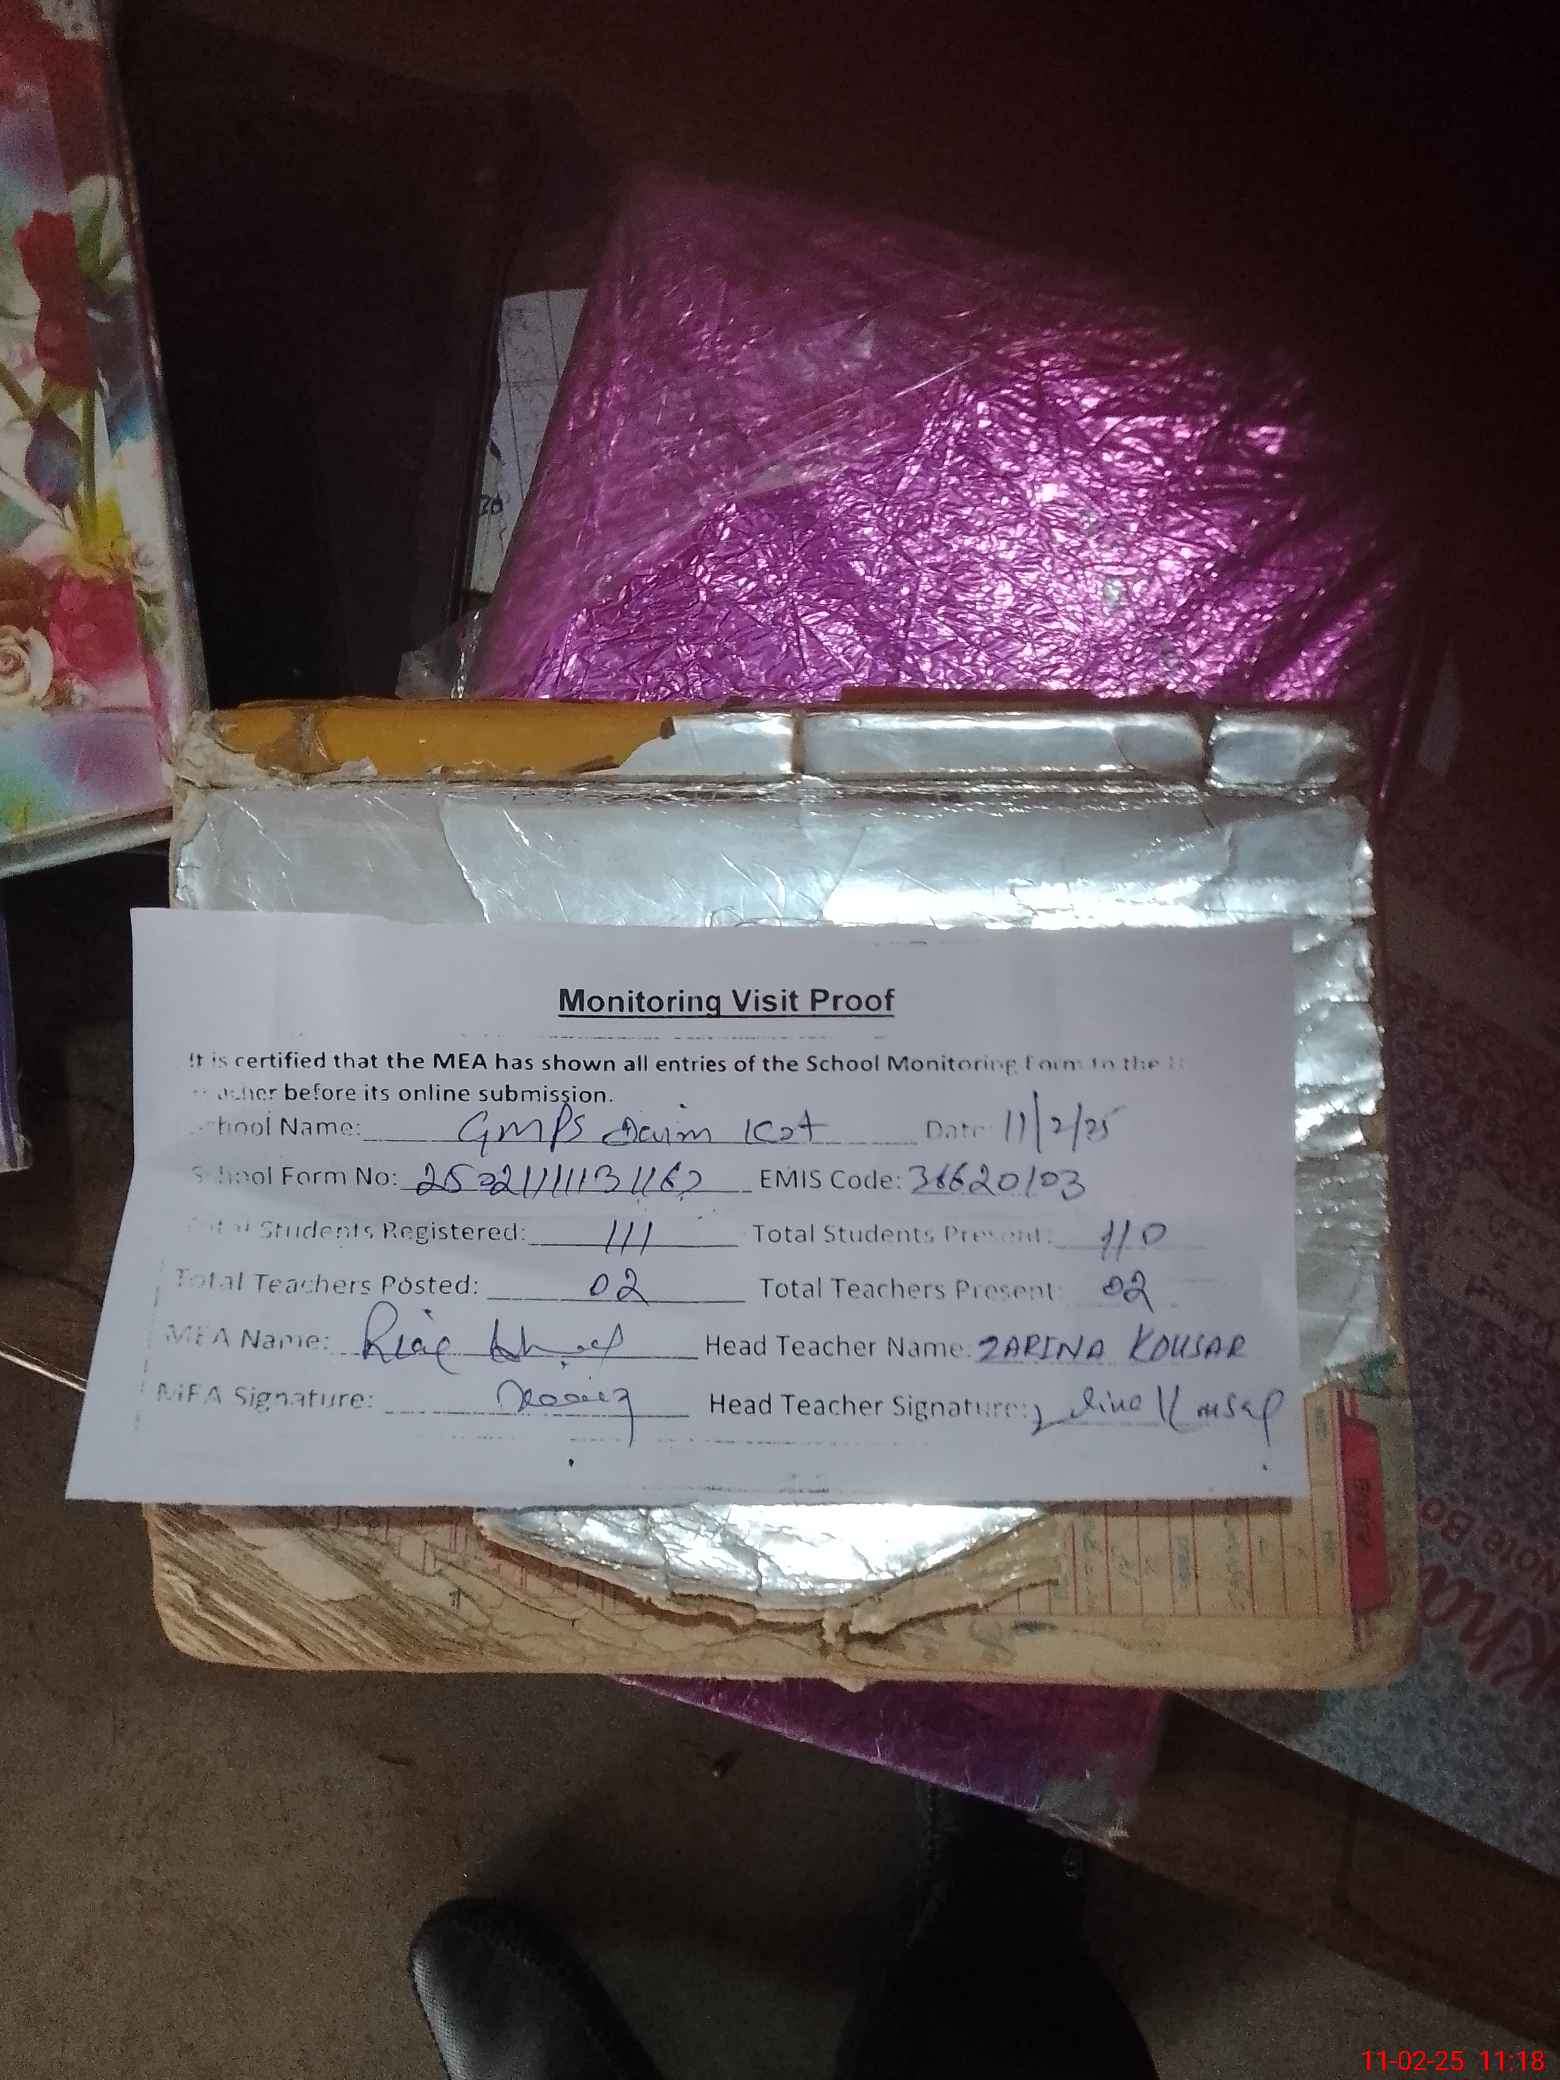 Monitoring Visit Proof
It is certified that the MEA has shown all entries of the School Monitoring Form to the
before its online submission.
School Name: GMPS Daim Kot Date: 11/2/25
School Form No: EMIS Code: 36620103
Total Students Registered: 111 Total Students Present: 110
Total Teachers Posted: 02 Total Teachers Present: 02
MEA Name: Riaz Head Teacher Name: ZARINA KOUSAR
MEA Signature: Head Teacher Signature: Kousar
Note Bo
11-02-25 11:18